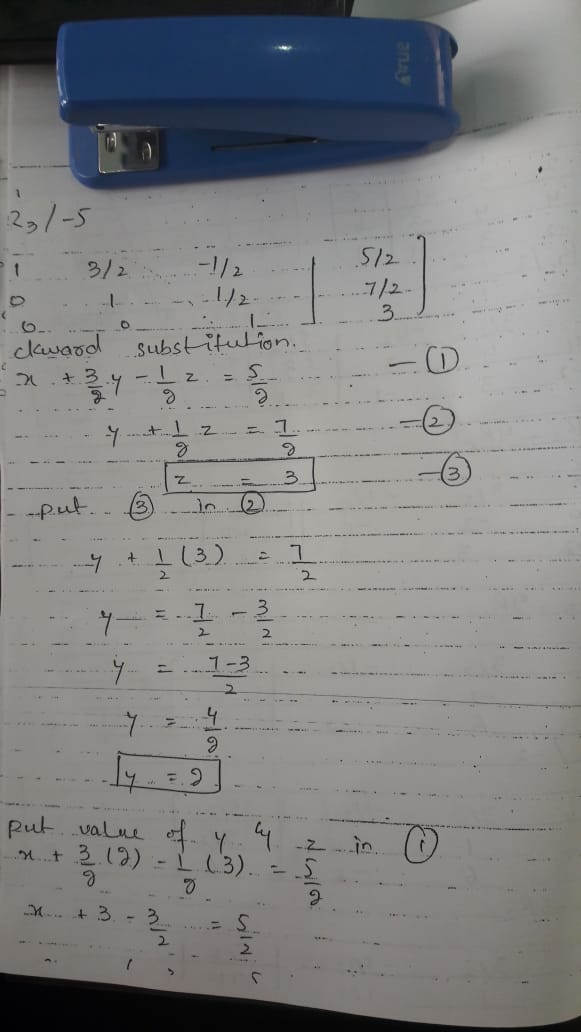 true
23/-5
1 3/2 -1/2 | 5/2
0 1 1/2 | 7/2
0 0 1 | 3
ckward substitution.
x + 3/2 y - 1/2 z = 5/2 - ①
y + 1/2 z = 7/2 - ②
z = 3 - ③
put ③ in ②
y + 1/2 (3) = 7/2
y = 7/2 - 3/2
y = 7-3/2
y = 4/2
y = 2
put value of y & z in ①
x + 3/2 (2) - 1/2 (3) = 5/2
x + 3 - 3/2 = 5/2